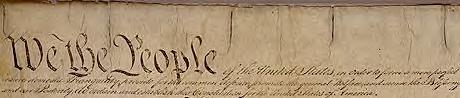 We the People of the United States, in Order to form a more perfect
insure domestic Tranquility, provide for the common defence, promote the general Welfare, and secure the Blessings
and our Posterity, do ordain and establish this Constitution for the United States of America.